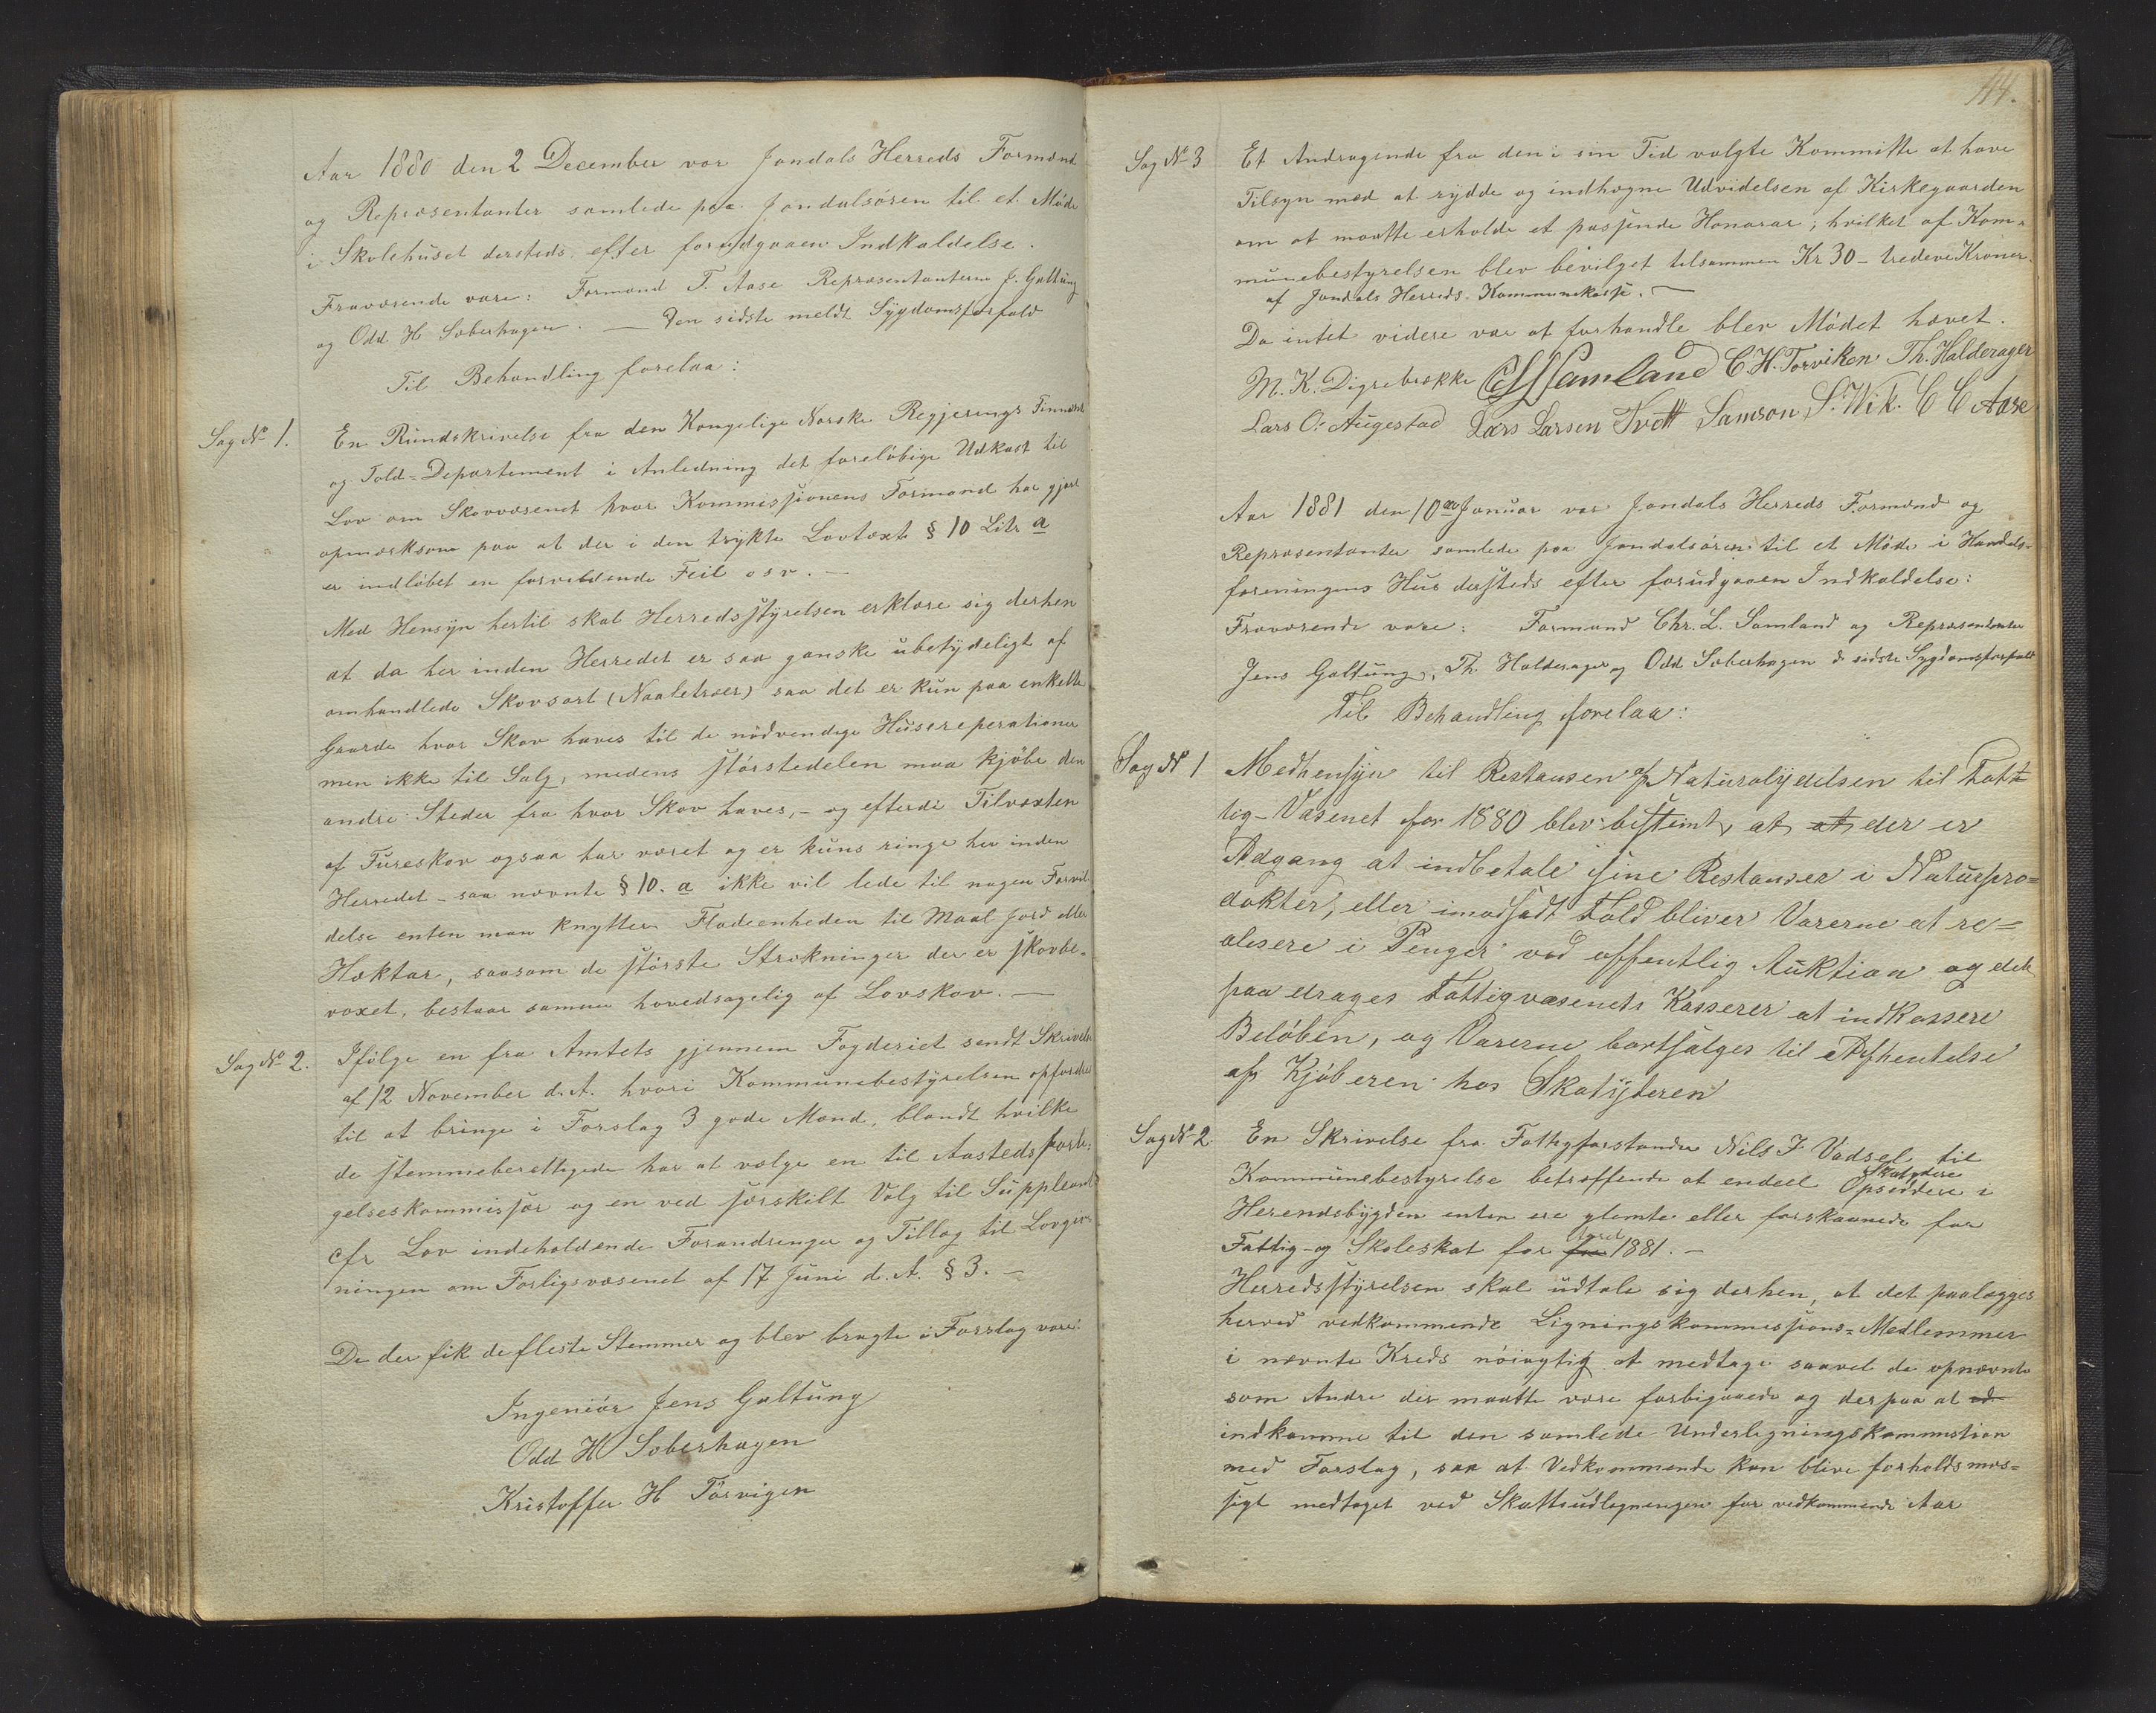 Aar 1880 den 2 December var Jondals Herreds Formænd
og Repræsentanter samlede paa Jondalsøren til et Møde
i Skolehuset dersteds efter forudgaaen Indkaldelse.
Fraværende vare: Formand T. Aase Repræsentanterne J. Galtung
og Odd H Soberhagen. — Den sidste meldt Sygdomsforfald
Til Behandling forelaa:
Sag No 1.
En Rundskrivelse fra den Kongelige Norske Regjerings Finants
og Told-Departement i Anledning det foreløbige Udkast til
Lov om Skovvæsenet hvor Kommissionens Formand har gjort
opmærksom paa at der i den trykte Lovtext § 10 Litr a
er indløbet en forvildende Feil osv. —
Med Hensyn hertil skal Herredsstyrelsen erklære sig derhen
at da her inden Herredet er saa ganske ubetydeligt af
omhandlede Skovsort (Naaletræer) saa det er kun paa enkelte
Gaarde hvor Skov haves til de nødvendige Husereperationer
men ikke til Salg, medens størstedelen maa kjøbe den
andre Steder fra hvor Skov haves, - og efterdi Tilvæxten
af Fureskov ogsaa har været og er kuns ringe her inden
Herredet - saa nævnte § 10. a ikke vil lede til nogen Forvil-
delse enten man knytter Fladeenheden til Maal Jord eller
Hæktar, saasom de største Strækninger der er skovbe-
voxet, bestaar samme hovedsagelig af Løvskov. —
Sag No 2.
Ifølge en fra Amtets gjennem Fogderiet sendt Skrivelse
af 12 November d. A. hvori Kommunebestyrelsen opfordres
til at bringe i Forslag 3 gode Mænd, blandt hvilke
de stemmeberettigede har at vælge en til Aastedsforli-
gelseskommissær og en ved særskilt Valg til Suppleant
cfr Lov indeholdende Forandringer og Tillæg til Lovgiv-
ningen om Forligsvæsenet af 17 Juni d. A. § 3. —
De der fik de fleste Stemmer og blev bragte i Forslag vare:
Ingeniør Jens Galtung
Odd H Soberhagen
Kristoffer H Törvigen
114.
Sag No 3
Et Andragende fra den i sin Tid valgte Kommitte at have
Tilsyn med at rydde og indhegne Udvidelsen af Kirkegaarden
om at maatte erholde et passende Honorar; hvilket af Kom-
munebestyrelsen blev bevilget tilsammen Kr 30 - tredeve Kroner.
af Jondals Herreds Kommunekasse. —
Da intet videre var at forhandle blev Mødet hævet.
M. K. Digrebrække C L Samland C. H. Torviken Th. Halderager
Lars O. Augestad Lars Larsen Tvett Samson S. Wik. C C Aase
Aar 1881 den 10de Januar var Jondals Herreds Formænd og
Repræsentanter samlede paa Jondalsøren til et Møde i Handels-
foreningens Hus dersteds efter forudgaaen Indkaldelse:
Fraværende vare: Formand Chr. L. Samland og Repræsentanter
Jens Galtung, Th. Halderager og Odd Soberhagen d. sidste Sygdomsforfald
Til Behandling forelaa:
Sag No 1
Medhensyn til Restansen af Naturalydelsen til Fatt
tig-Væsenet for 1880 blev bestemt, at at der er
Adgang at indbetale sine Restanser i Naturpro-
dokter, eller imodsadt Fald bliver Varerne at re-
alisere i Penger ved offentlig Auktion og det
paa drages Fattigvæsenets Kasserer at indkassere
Beløben, og Varerne bortsælges til Afhentelse
af Kjøberen hos Skatyderen
Sag No 2
En Skrivelse fra Fattigforstander Nils J. Vadsel til
Kommunebestyrelse betræffende at endeel Opsiddere i
Skatydere
Herendsbygden enten ere glemte eller forskaanede for
Fattig- og Skoleskat for for 1881. —
Aaret
Herredsstyrelsen skal udtale sig derhen, at det paalægges
herved vedkommende Ligningskommissions-Medlemmer
i nævnte Kreds nøiagtig at medtage saavel de opnævnte
som Andre der maatte være forbigaaede og derpaa at ed
indkomme til den samlede Underligningskommistion
med Forslag, saa at Vedkommende kan blive forholdsmæs-
sigt medtaget ved Skatteudligningen for vedkommende Aar